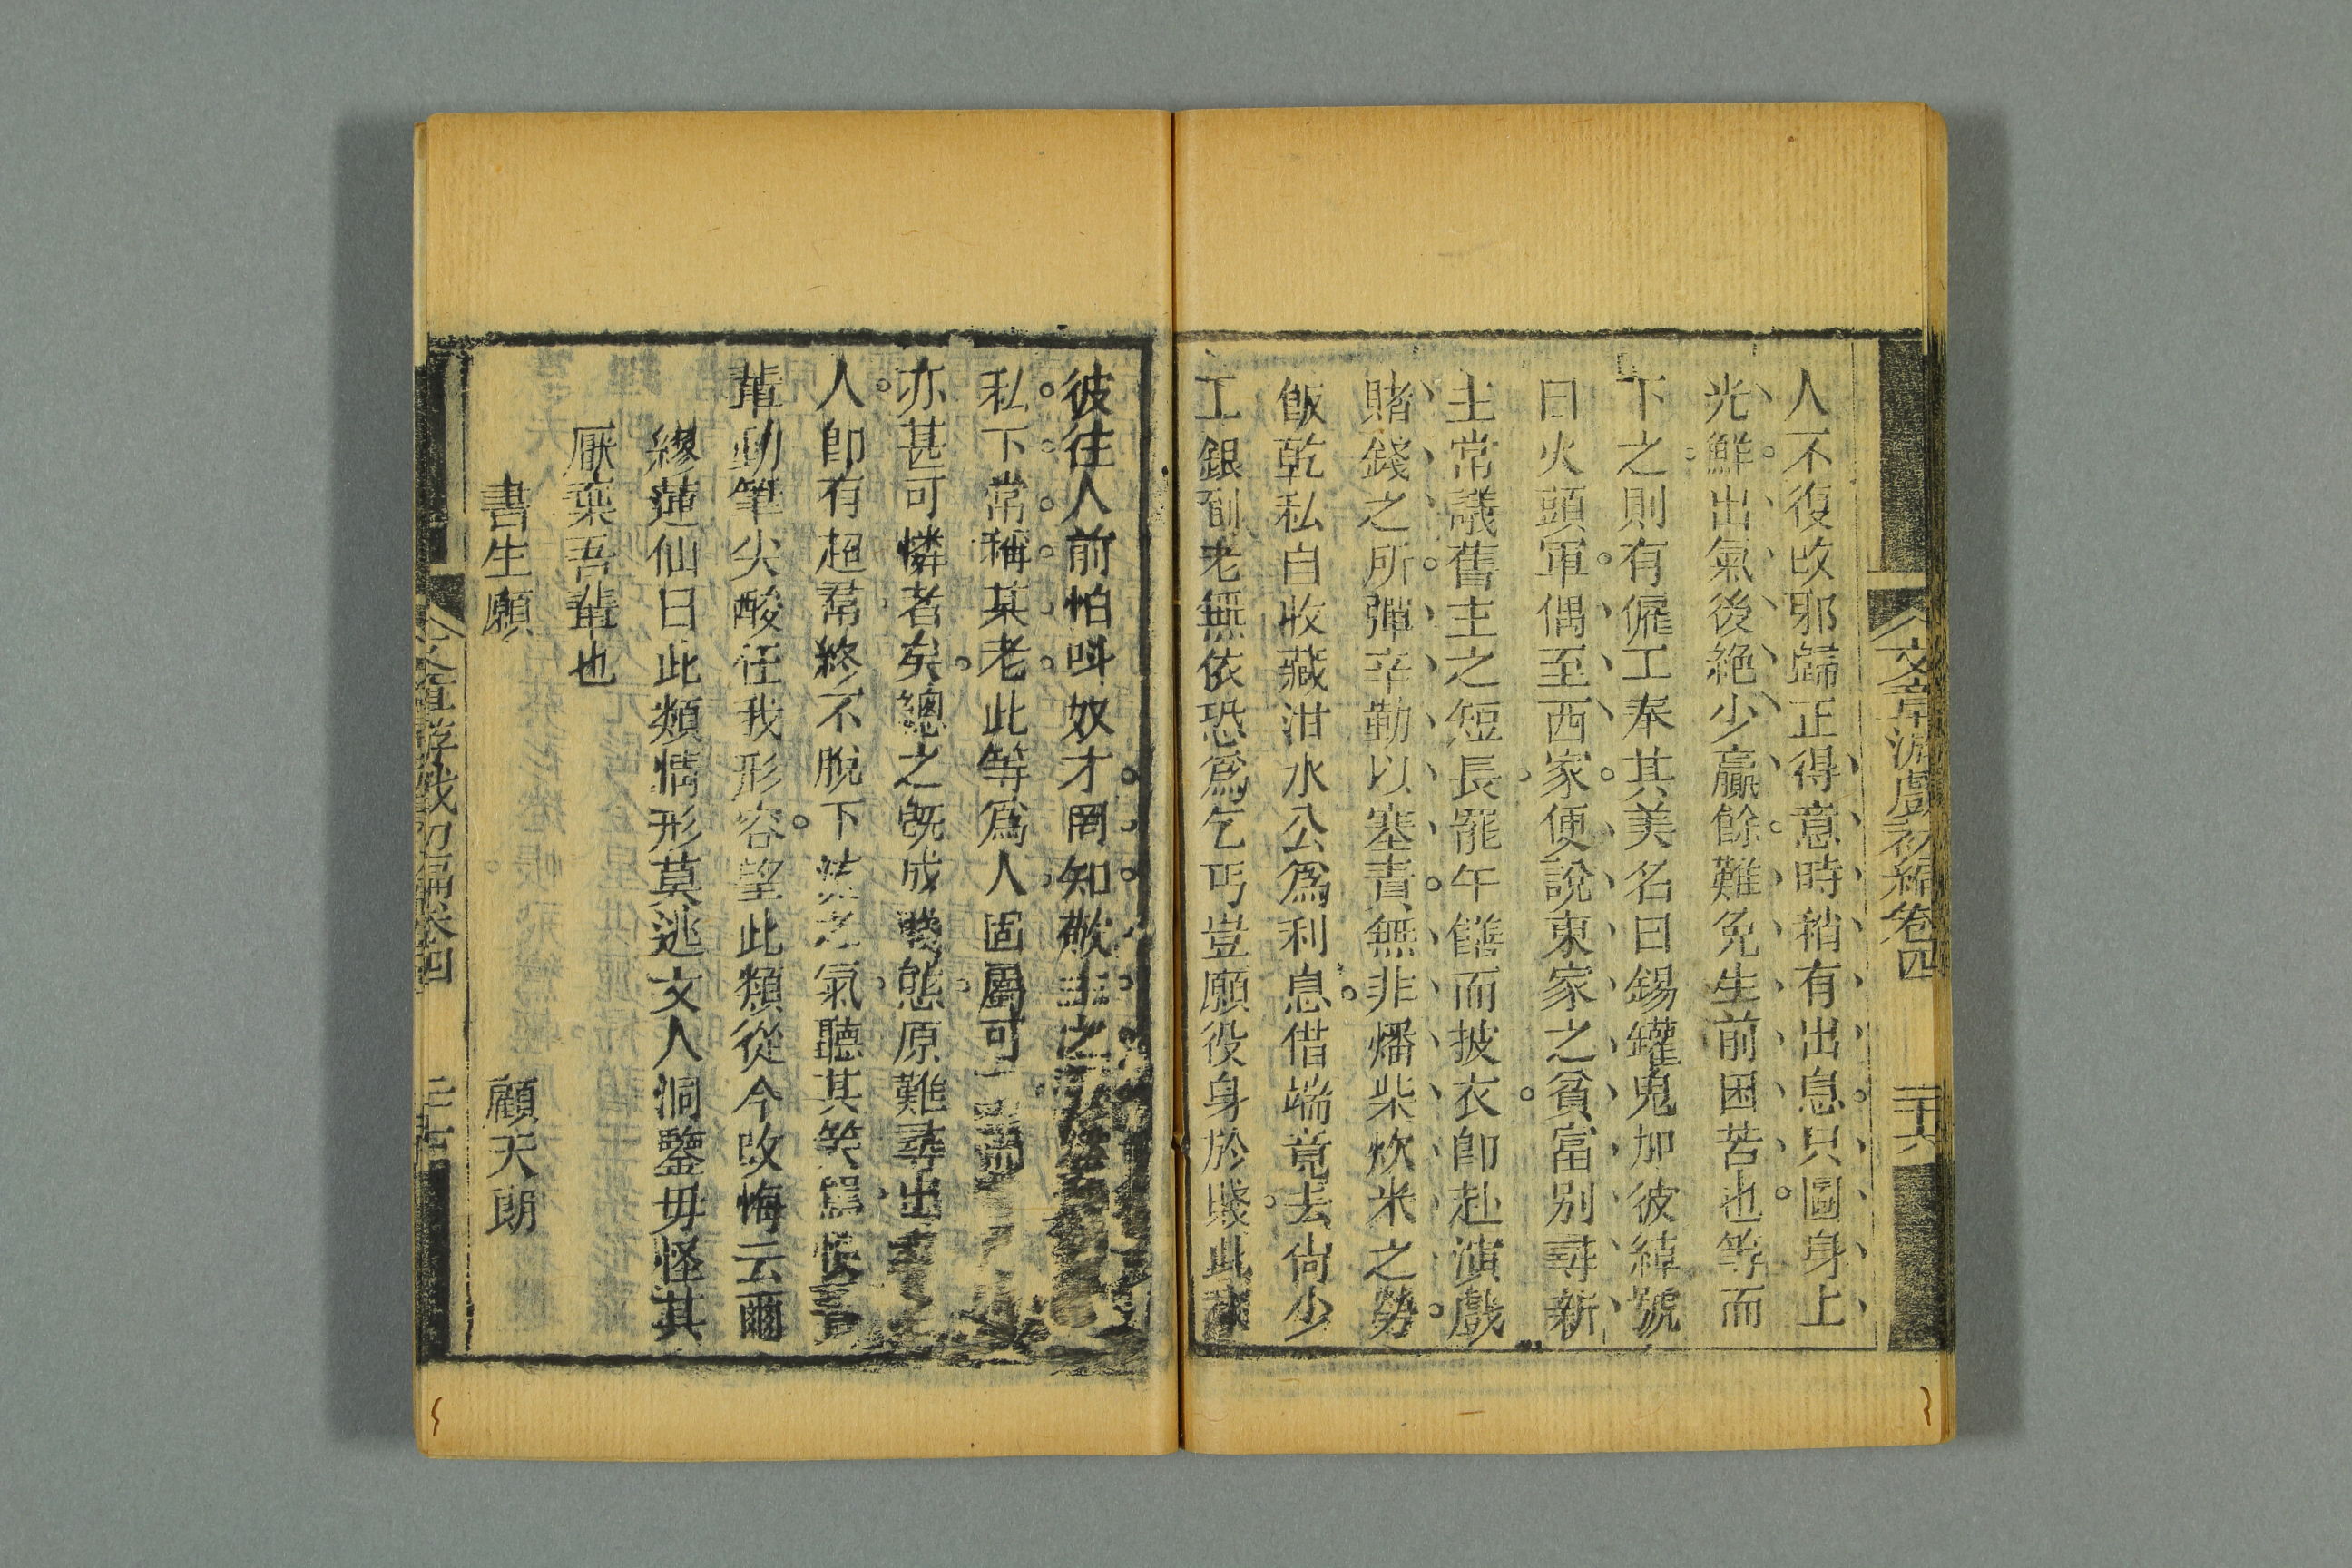 文章游戲初編卷四
二十六
人不復改邪歸正得意時稍有出息只圖身上
光鮮出氣後絶少贏餘難免生前困苦也等而
下之則有僱工奉其美名曰錫罐鬼加彼綽號
曰火頭軍偶至西家便說東家之貧富别尋新
主常議舊主之短長罷午饍而披衣即赴演戲
賭錢之所彈辛勤以塞責無非燔柴炊米之勞
飯乾私自收藏泔水公爲利息借端竟去尚少
工銀到老無依恐爲乞丐豈願役身於賤此
彼往人前怕呌奴才罔知敬主之
私下常稱某老此等爲人固屬可
亦甚可憐者矣總之旣成賤態原難尋出
人即有超羣終不脫下流之氣聽其笑罵
輩動筆尖酸任我形容望此類從今改悔云爾
繆蓮仙曰此類情形莫逃文人洞鑒毋怪其
厭棄吾輩也
書生願
顧天朗
文章游戲初編卷四